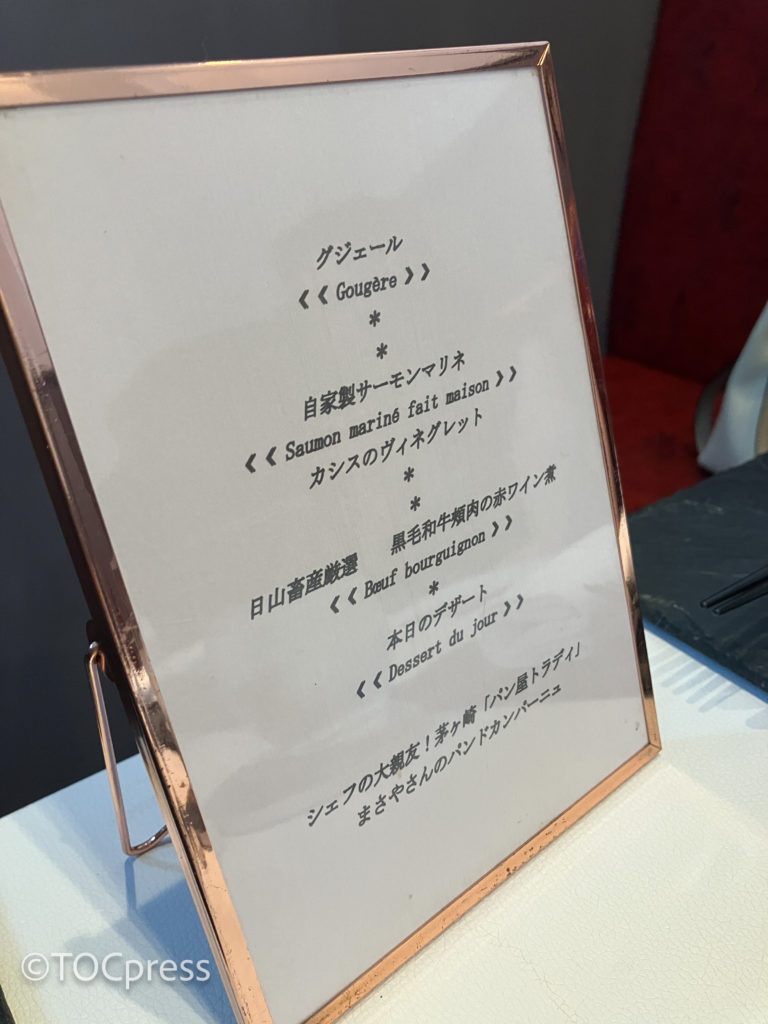 グジェール
《《 Gougère 》》
*
*
自家製サーモンマリネ
《《 Saumon mariné fait maison 》》
カシスのヴィネグレット
*
*
日山畜産厳選　黒毛和牛頬肉の赤ワイン煮
《《 Bœuf bourguignon 》》
*
本日のデザート
《《 Dessert du jour 》》
シェフの大親友！茅ヶ崎「パン屋トラディ」
まさやさんのパンドカンパーニュ
©TOCpress